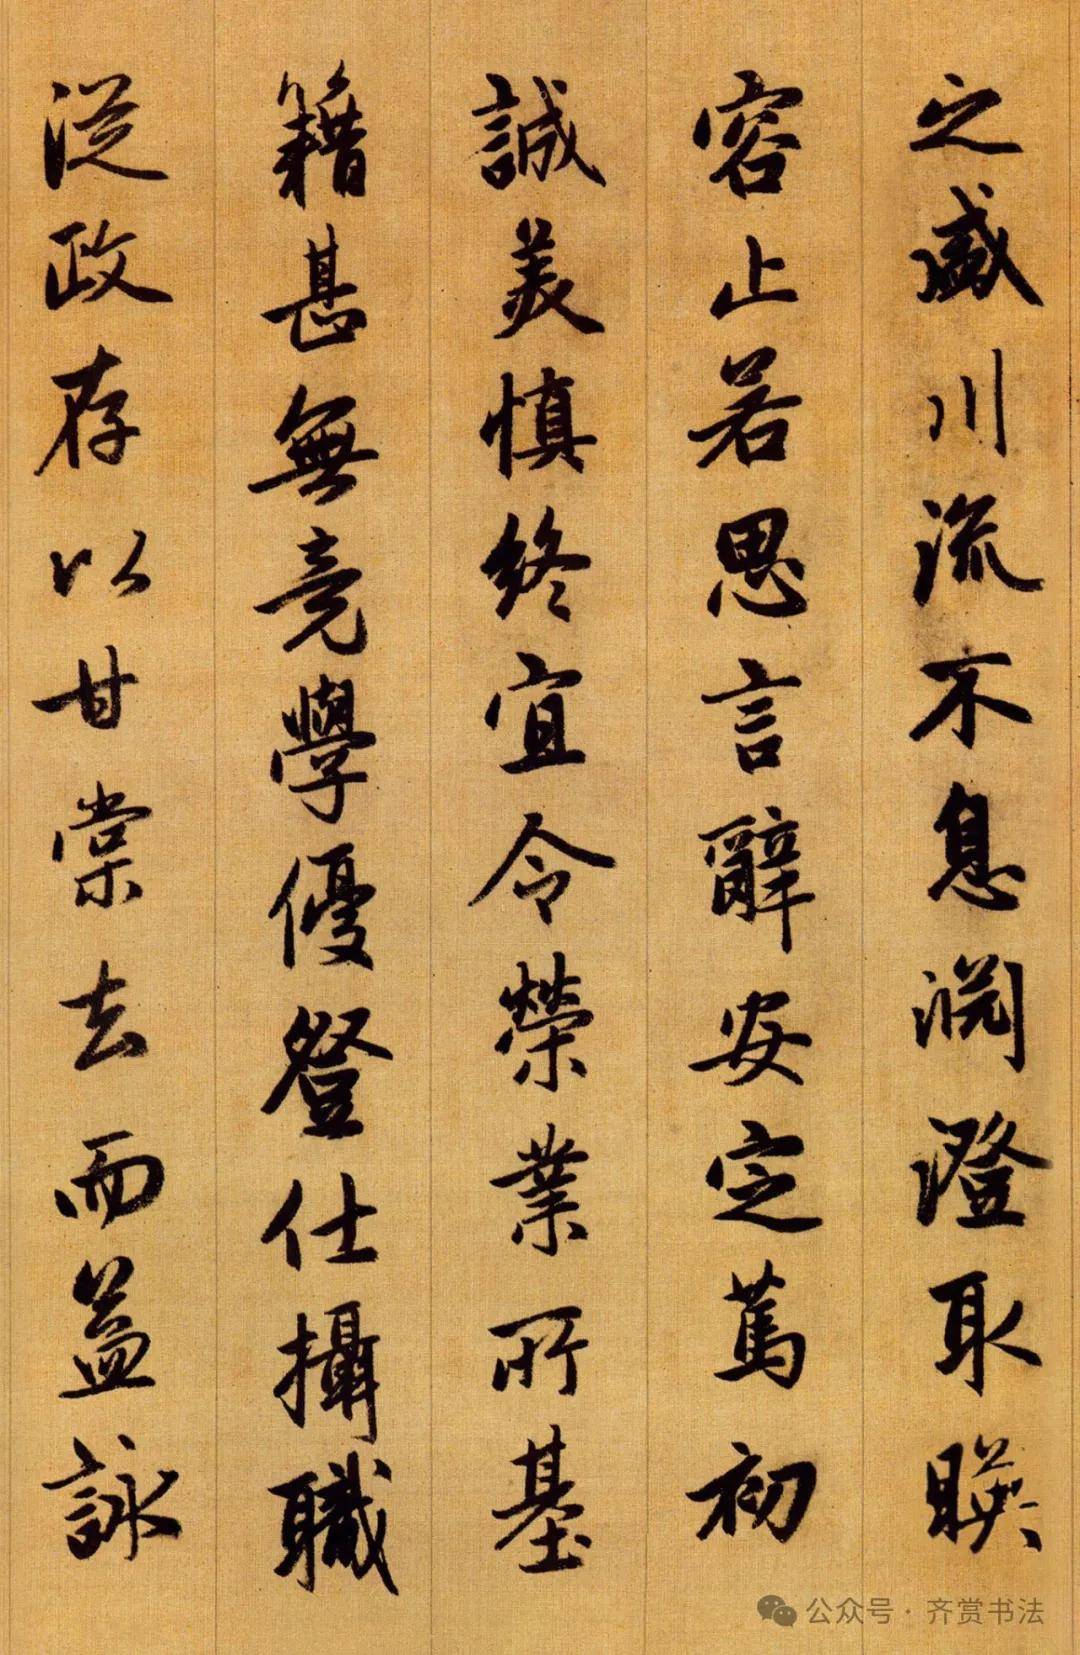 之盛川流不息渊澄取暎
容止若思言辭安定篤初
誠美慎終宜令榮業所基
籍甚無竟學優登仕攝職
從政存以甘棠去而益詠
公众号·齐赏书法